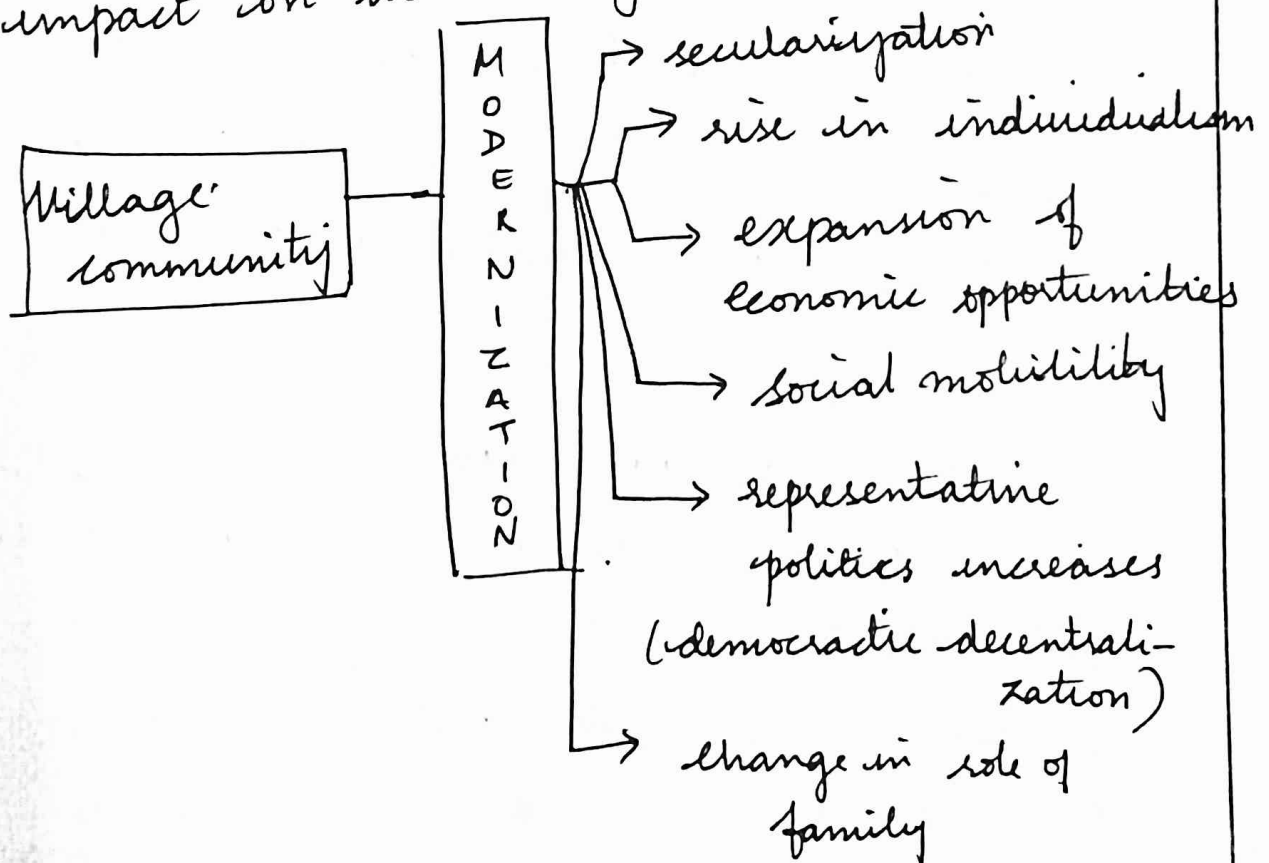 impact on
Village
community
MODERNIZATION
secularization
rise in individualism
expansion of
economic opportunities
social mobilility
representative
politics increases
(democractic decentrali-
zation)
change in role of
family